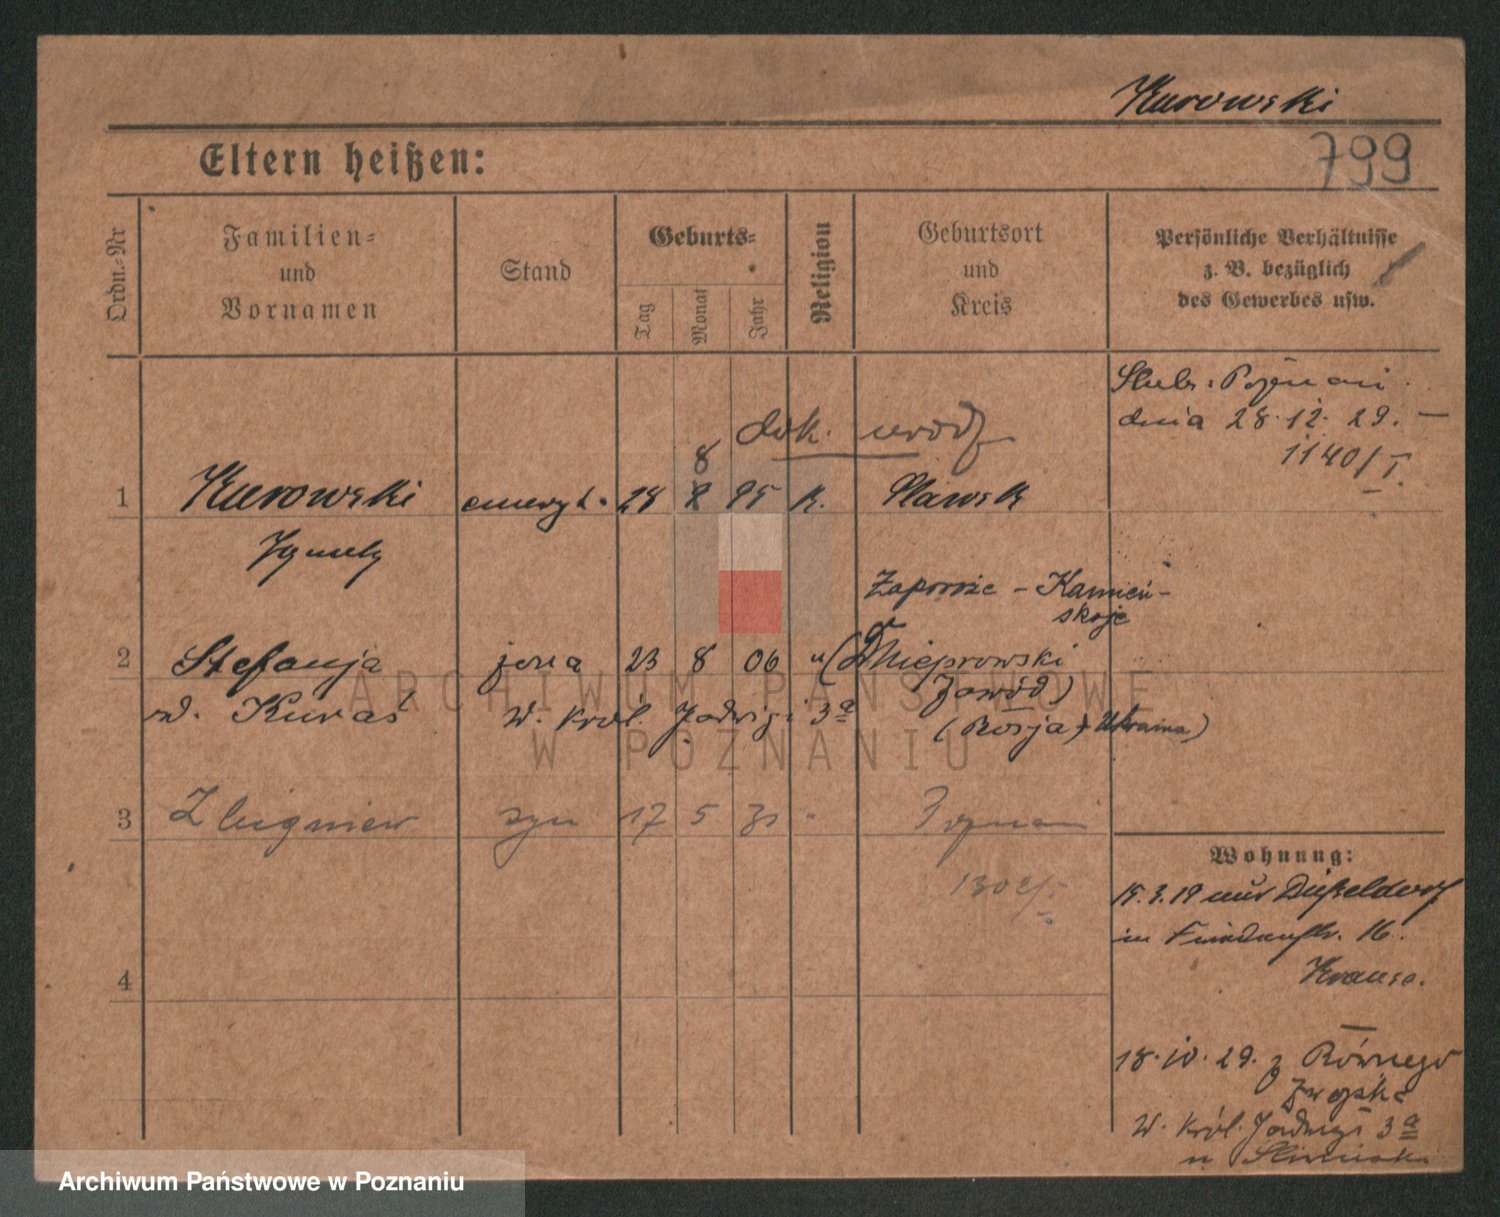 Kurowski
799
Eltern heißen:
Ordn.-Nr
Familien-
und
Vornamen
Stand
Geburts-
Tag
Monat
Jahr
Religion
Geburtsort
und
Kreis
Persönliche Verhältnisse
z. B. bezüglich
des Gewerbes usw.
Ślub: Poznań
dnia 28.12.29. —
1140/I.
dok. urodz
8
1 Kurowski emeryt. 28 8 95 K. Sławsk
Ignacy
Zaporoże - Kamień-
skoje
2 Stefanja żona 23 8 06 " (Dnieprowski
Zawód)
ur. Kuraś W. Król. Jadwigi 3a
(Rosja) Ukraina)
3 Zbigniew syn 17 5 31 " Poznań
4
Wohnung:
15.3.19 aus Düßeldorf
in 16.
Krause.
18.10.29. z Równego
W. Król. Jadwigi 3a
u
ARCHIWUM PAŃSTWOWE
W POZNANIU
Archiwum Państwowe w Poznaniu